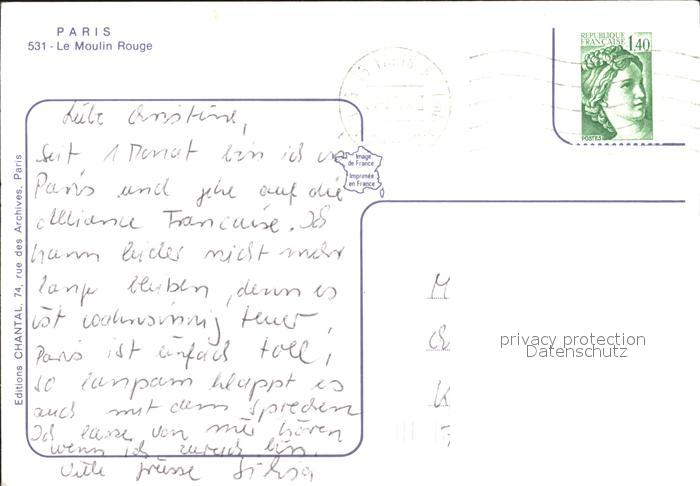 PARIS
531 - Le Moulin Rouge
REPUBLIQUE
FRANCAISE 1,40
POSTES
Liebe Christine,
seit 1 Monat bin ich in
Paris und gehe auf die
Alliance Francaise. Ich
kann leider nicht mehr
lange bleiben, denn es
ist wahnsinnig teuer,
Paris ist einfach toll,
so langsam klappt es
auch mit dem Sprechen
Ich lasse von mir hören
wenn ich zurück bin.
Viele Grüsse Silvia
Image
de France
Imprimée
en France
Editions CHANTAL, 74, rue des Archives, Paris
M
Ch
privacy protection
Datenschutz